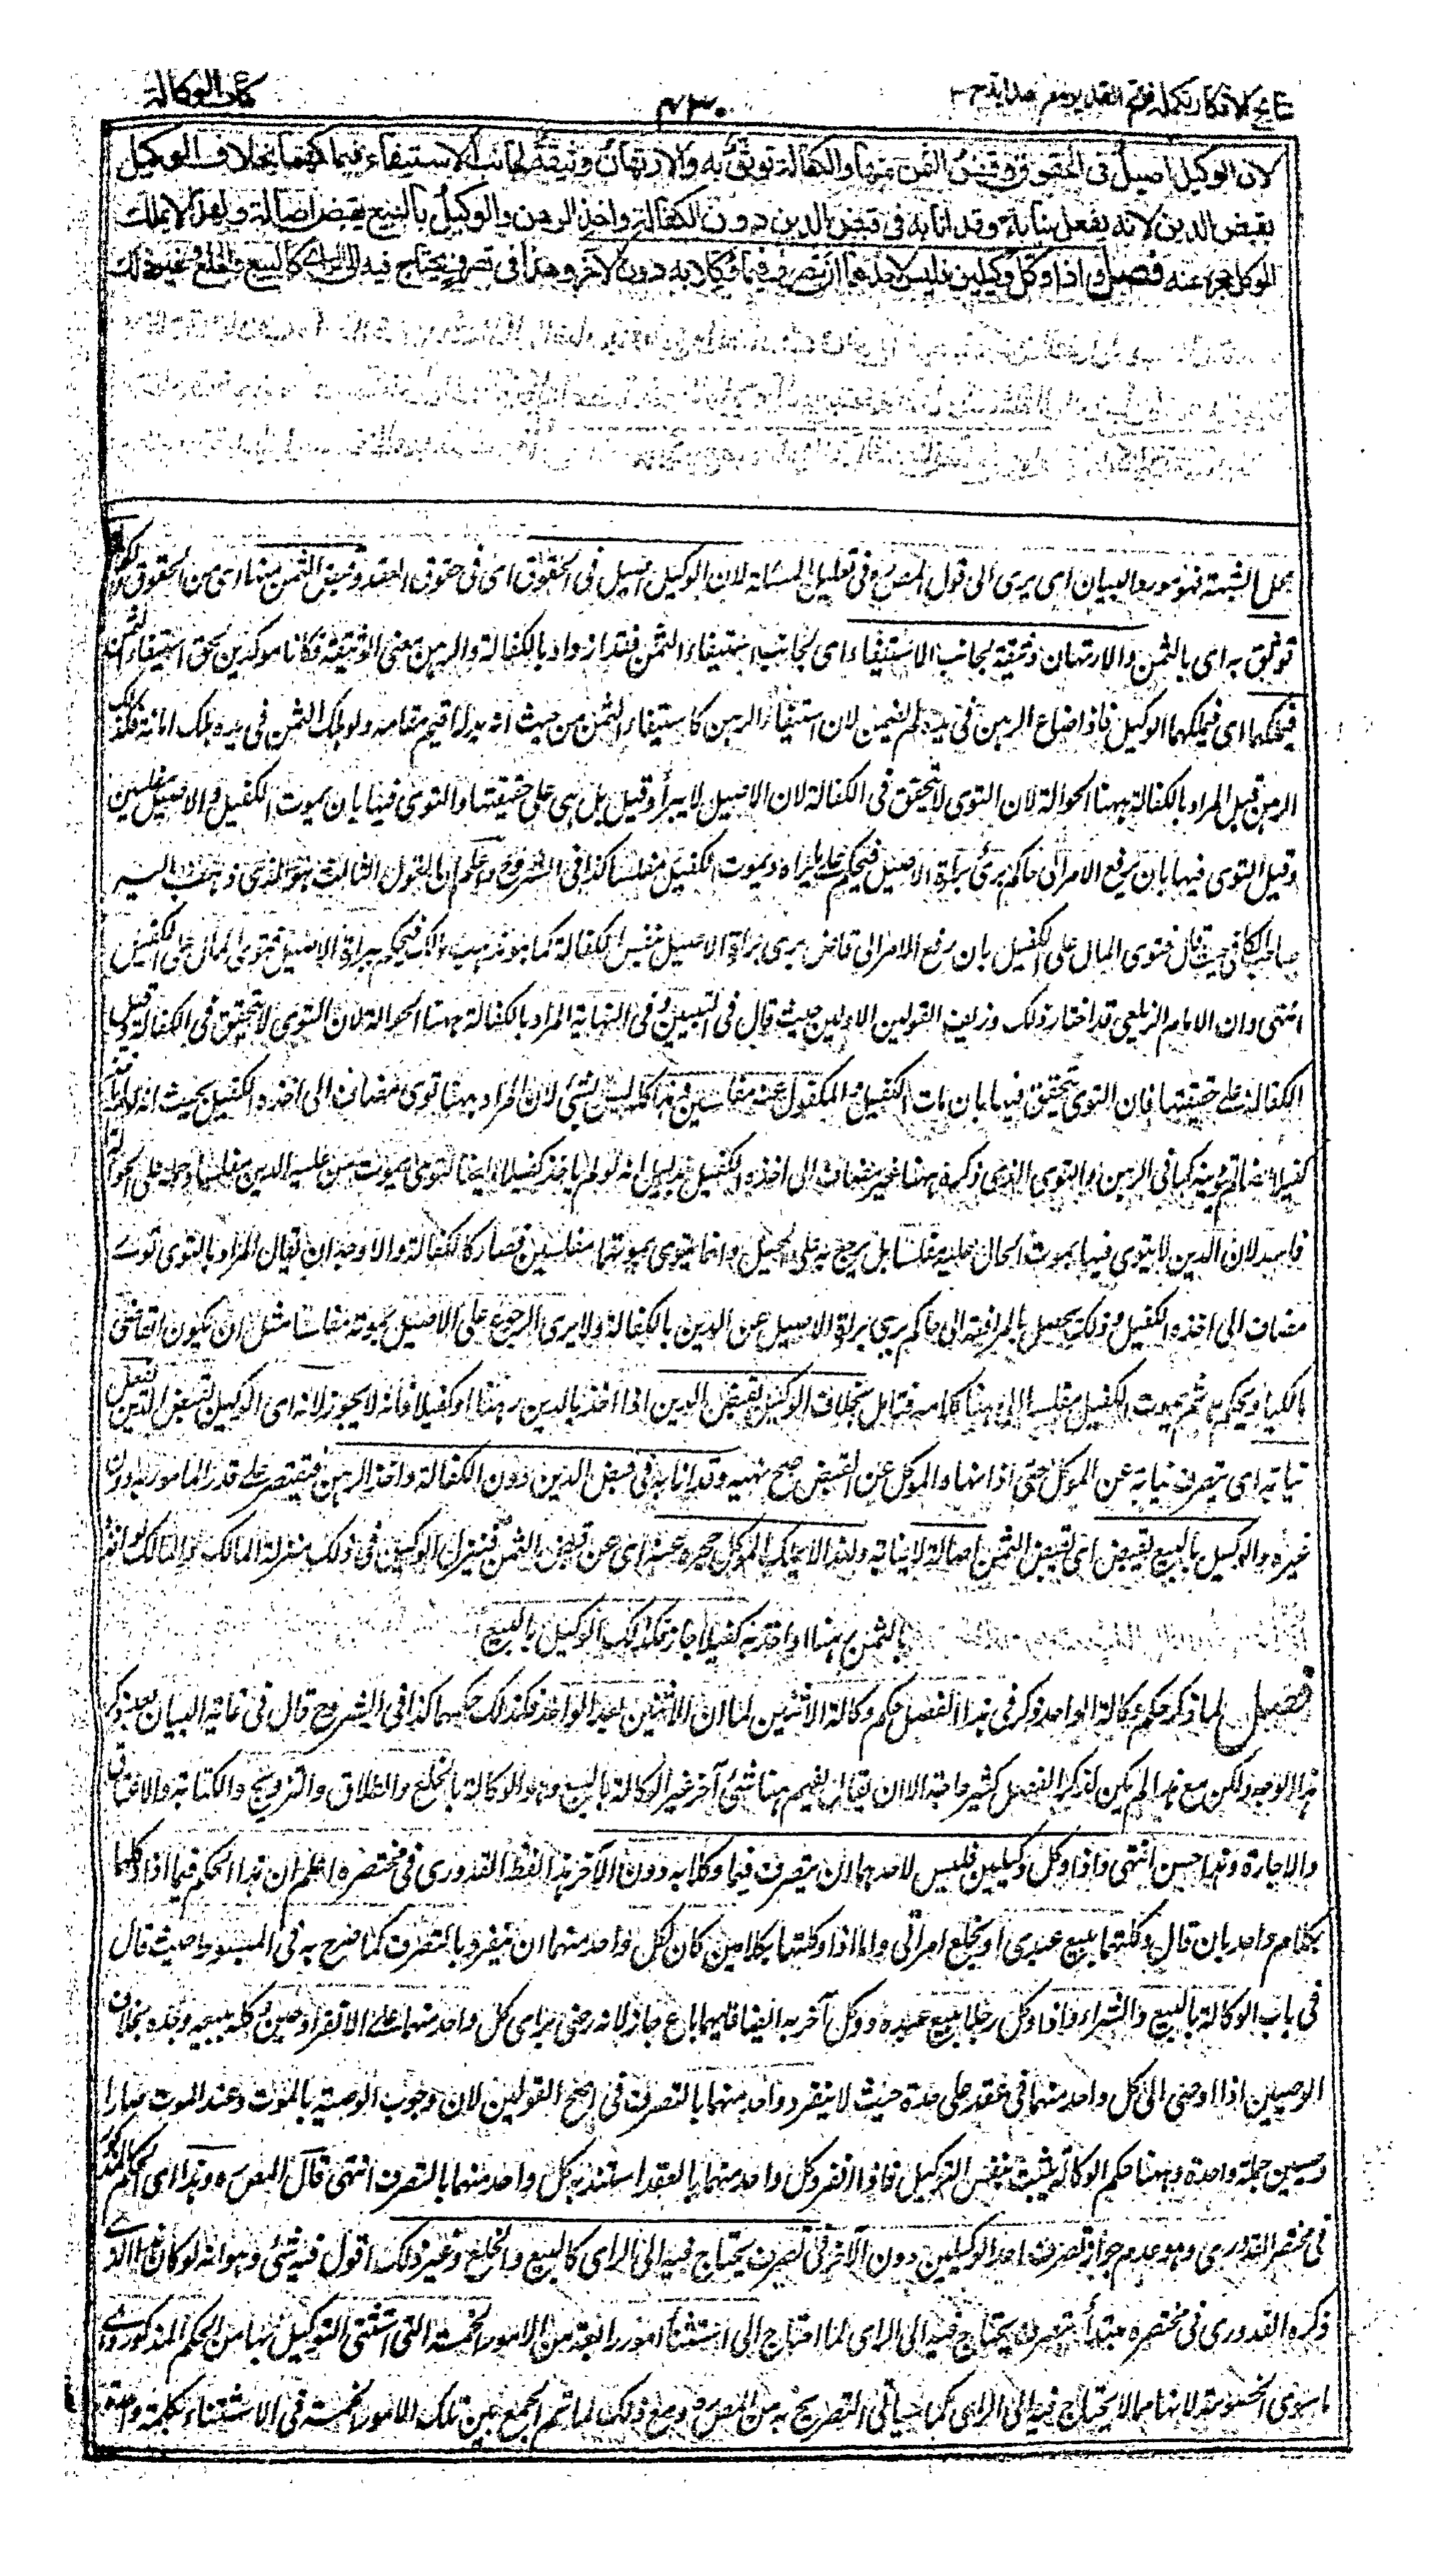 نتائج الافكار تكملة فتح القدير مع هداية ج ٣
٤٣٠
كتاب الوكالة
لان الوكيل اصيل فى الحقوق وقبض الثمن منها والكفالة توثق به والارتهان وثيقة لجانب الاستيفاء فيملكهما بخلاف الوكيل
بقبض الدين لانه يفعل نيابة وقد انابه فى قبض الدين دون الكفالة واخذ الرهن والوكيل بالبيع يقبض اصالة ولهذا لا يملك
الموكل حجره عنه فصل واذا وكل وكيلين فليس لاحدهما ان يتصرف فيما وكلا به دون الآخر وهذا فى تصرف يحتاج فيه الى الراى كالبيع والخلع وغير ذلك
محل الشبهة فهو مورد البيان اى يرى الى قول المصنف فى تعليل المسئلة لان الوكيل اصيل فى الحقوق اى فى حقوق العقد وقبض الثمن منها اى من الحقوق والكفالة
توثق به اى بالثمن والارتهان وثيقة لجانب الاستيفاء اى لجانب استيفاء الثمن فقد ازداد بالكفالة والرهن معنى الوثيقة فكانا موكدين لحق استيفاء الثمن
فيملكهما اى فيملكهما الوكيل فاذا ضاع الرهن فى يده لم يضمن لان استيفاء الرهن كاستيفاء الثمن من حيث انه بدل اقيم مقامه ولو هلك الثمن فى يده هلك امانة فكذلك
الرهن قيل المراد بالكفالة ههنا الحوالة لان التوى لا يتحقق فى الكفالة لان الاصيل لا يبرأ وقيل بل هى على حقيقتها والتوى فيها بان يموت الكفيل والاصيل مفلسين
وقيل التوى فيها بان يرفع الامر الى حاكم يرى براءة الاصيل فيحكم على ما يراه ويموت الكفيل مفلسا كذا فى الشروح واعلم ان القول الثالث هو الذى ذهب اليه
صاحب الكافى حيث قال فتوى المال على الكفيل بان رفع الامر الى قاض يرى براءة الاصيل بنفس الكفالة كما هو مذهب مالك فيحكم ببراءة الاصيل فتوى المال على الكفيل
انتهى وان الامام الزيلعى قد اختار ذلك وزيف القولين الاولين حيث قال فى التبيين وفى النهاية المراد بالكفالة ههنا الحوالة لان التوى لا يتحقق فى الكفالة وقيل
الكفالة على حقيقتها فان التوى يتحقق فيها بان مات الكفيل والمكفول عنه مفلسين وهذا كله ليس بشئ لان المراد ههنا توى مضاف الى اخذه الكفيل بحيث انه لو لم ياخذ
كفيلا ايضا لم يتو دينه كما فى الرهن والتوى الذى ذكره ههنا غير مضاف الى اخذه الكفيل بدليل انه لو لم ياخذ كفيلا ايضا لتوى بموت من عليه الدين مفلسا وحمله على الحوالة
فاسد لان الدين لا يتوى فيها بموت المحال عليه مفلسا بل يرجع به على المحيل وانما يتوى بموتهما مفلسين فصار كالكفالة والاوجه ان يقال المراد بالتوى توى
مضاف الى اخذه الكفيل وذلك يحصل بالمرافعة الى حاكم يرى براءة الاصيل عن الدين بالكفالة ولا يرى الرجوع على الاصيل بموته مفلسا مثل ان يكون القاضى
مالكيا ويحكم به ثم يموت الكفيل مفلسا الى هنا كلامه فتامل بخلاف الوكيل بقبض الدين اذا اخذ بالدين رهنا او كفيلا فانه لا يجوز لانه اى الوكيل بقبض الدين يفعل
نيابة اى يتصرف نيابة عن الموكل حتى اذا نهاه الموكل عن القبض صح نهيه وقد انابه فى قبض الدين دون الكفالة واخذ الرهن فيقتصر على قدر المامور به دون
غيره والوكيل بالبيع يقبض اى يقبض الثمن اصالة لا نيابة ولهذا لا يملك الموكل حجره عنه اى عن قبض الثمن فينزل الوكيل فى ذلك منزلة المالك والمالك لو اخذ
بالثمن رهنا او اخذ به كفيلا جاز فكذلك الوكيل بالبيع
فصل لما ذكر حكم وكالة الواحد ذكر فى هذا الفصل حكم وكالة الاثنين لما ان الاثنين بعد الواحد فكذلك حكمهما كذا فى الشروح قال فى غاية البيان بعد ذكر
هذا الوجه ولكن مع هذا لم يكن لذكر الفصل كثير حاجة الا ان يقال يفهم هنا شئ آخر غير الوكالة بالبيع وهو الوكالة بالخلع والطلاق والتزويج والكتابة والاعتاق
والاجارة وهذا حسن انتهى واذا وكل وكيلين فليس لاحدهما ان يتصرف فيما وكلا به دون الآخر هذا لفظ القدورى فى مختصره اعلم ان هذا الحكم فيما اذا وكلهما
بكلام واحد بان قال وكلتهما ببيع عبدى او بخلع امراتى واما اذا وكلتهما بكلامين كان لكل واحد منهما ان ينفرد بالتصرف كما صرح به فى المبسوط حيث قال
فى باب الوكالة بالبيع والشراء واذا وكل رجلا ببيع عبده ووكل آخر به ايضا فايهما باع جاز لانه رضى براى كل واحد منهما على الانفراد حين وكله ببيعه وحده بخلاف
الوصيين اذا اوصى الى كل واحد منهما فى عقد على حدة حيث لا ينفرد واحد منهما بالتصرف فى اصح القولين لان وجوب الوصية بالموت وعند الموت صارا
وصيين جملة واحدة وههنا حكم الوكالة يثبت بنفس التوكيل فاذا انفرد كل واحد منهما بالعقد استبد كل واحد منهما بالتصرف انتهى قال المصنف ره وهذا اى الحكم المذكور
فى مختصر القدورى وهو عدم جواز تصرف احد الوكيلين دون الآخر فى تصرف يحتاج فيه الى الراى كالبيع والخلع وغير ذلك اقول فيه شئ وهو انه لو كان هذا الذى
ذكره القدورى فى مختصره مبتدأ بتصرف يحتاج فيه الى الراى لما احتاج الى استثناء امور اربعة من الامور الخمسة التى استثنى التوكيل بها من الحكم المذكور وهى
ما سوى الخصومة لانها مما لا يحتاج فيه الى الراى كما سياتى التصريح به من المصنف ومع ذلك لما تم الجمع بين تلك الامور الخمسة فى الاستثناء بكلمة واحدة